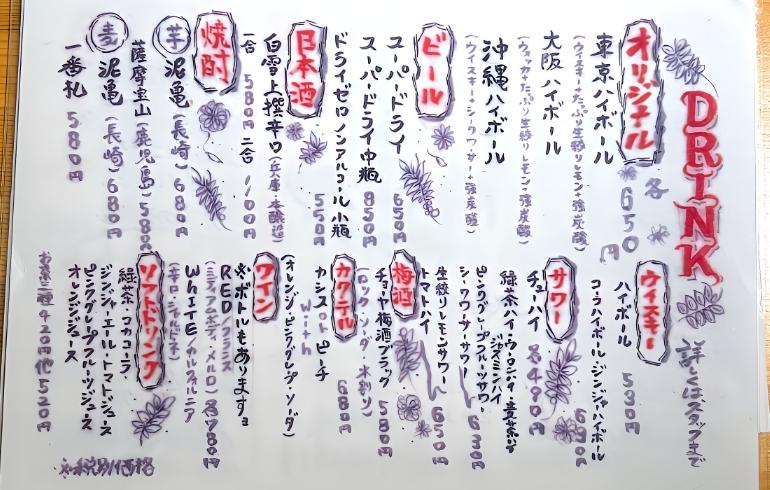 DRINK
詳しくはスタッフまで
オリジナル
各650円
東京ハイボール
(ウィスキー+たっぷり生絞りレモン+強炭酸)
大阪ハイボール
(ウォッカ+たっぷり生絞りレモン+強炭酸)
沖縄ハイボール
(ウィスキー+シークワーサー+強炭酸)
ビール
スーパードライ 650円
スーパードライ中瓶 850円
ドライゼロノンアルコール小瓶 550円
日本酒
白雪上撰辛口(兵庫・本醸造)
一合 580円 二合 1,100円
焼酎
芋 泥亀(長崎) 680円
薩摩宝山(鹿児島) 580円
麦 泥亀(長崎) 680円
一番札 580円
ウィスキー
ハイボール 530円
コーラハイボール・ジンジャーハイボール 630円
サワー
チューハイ 各490円
緑茶ハイ・ウーロンハイ・
ジャスミンハイ
ピンクグレープフルーツサワー 630円
シークワーサーサワー
生絞りレモンサワー 650円
トマトハイ
梅酒
チョーヤ梅酒ブラック 580円
(ロック・ソーダ・水割り)
カクテル
カシス or ピーチ 680円
with
(オレンジ・ピンクグレープ・ソーダ)
ワイン
※ボトルもありますョ
RED/フランス
(ミディアムボディ・メルロ) 各780円
WHITE/カルフォルニア
(辛口・シャルドネ)
ソフトドリンク
緑茶・コカコーラ・
ジンジャーエール・トマトジュース
ピンクグレープフルーツジュース
オレンジジュース
お茶二種420円他520円
※税別価格